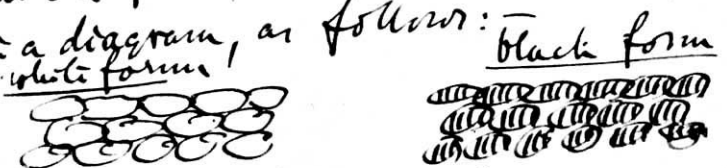 a diagram, as follows:
white form
black form